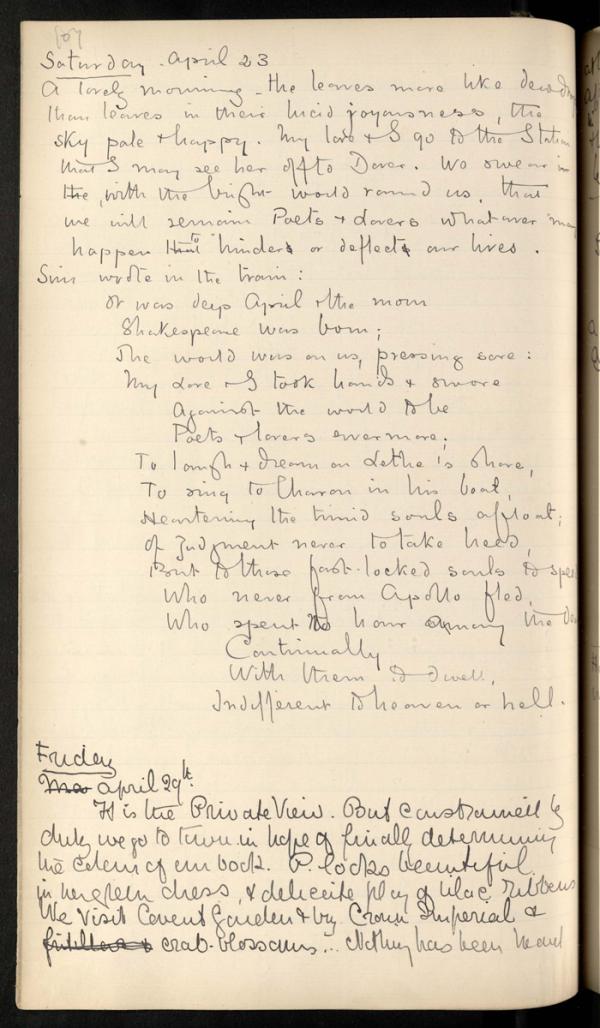 107
Saturday. April 23
A lovely morning - the leaves more like dewdrops
than leaves in their lucid joyousness, the
sky pale & happy. My love & I go to the Station
that I may see her off to Dover. We swear in
the, with the bright world round us, that
we will remain Poets & Lovers whatever may
happen that to hinders or deflects our lives.
Sim wrote in the train:
It was deep April & the morn
Shakespeare was born;
The world was on us, pressing sore:
My Love & I took hands & swore
Against the world to be
Poets & lovers evermore;
To laugh & dream on Lethe's shore,
To sing to Charon in his boat,
Heartening the timid souls afloat;
Of Judgment never to take heed,
But to those fast-locked souls to speed
Who never from Apollo fled,
Who spent no hour among the dead
Continually
With them to dwell,
Indifferent to heaven or hell.
Friday
April 29th.
It is the Private View. But constrained by
duty we go to town in hope of finally determining
the colour of our book. P. looks beautiful
in her green dress, & delicate play of lilac ribbons
We visit Covent Garden & buy Crown Imperial &
crab-blossoms... Nothing has been heard